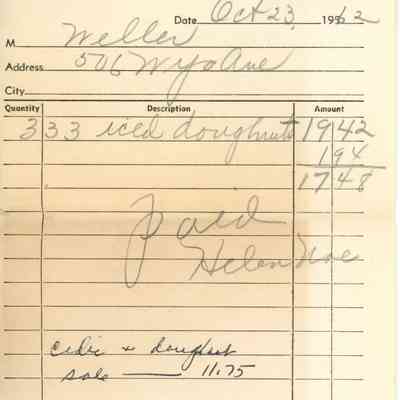 Date Oct 23, 1962
M Weller
Address 506 Wyo Ave
City
Quantity Description Amount
333 iced doughnuts 19 42
1 94
17 48
paid
Helen Noe
cider + doughnut
sale — 11.75